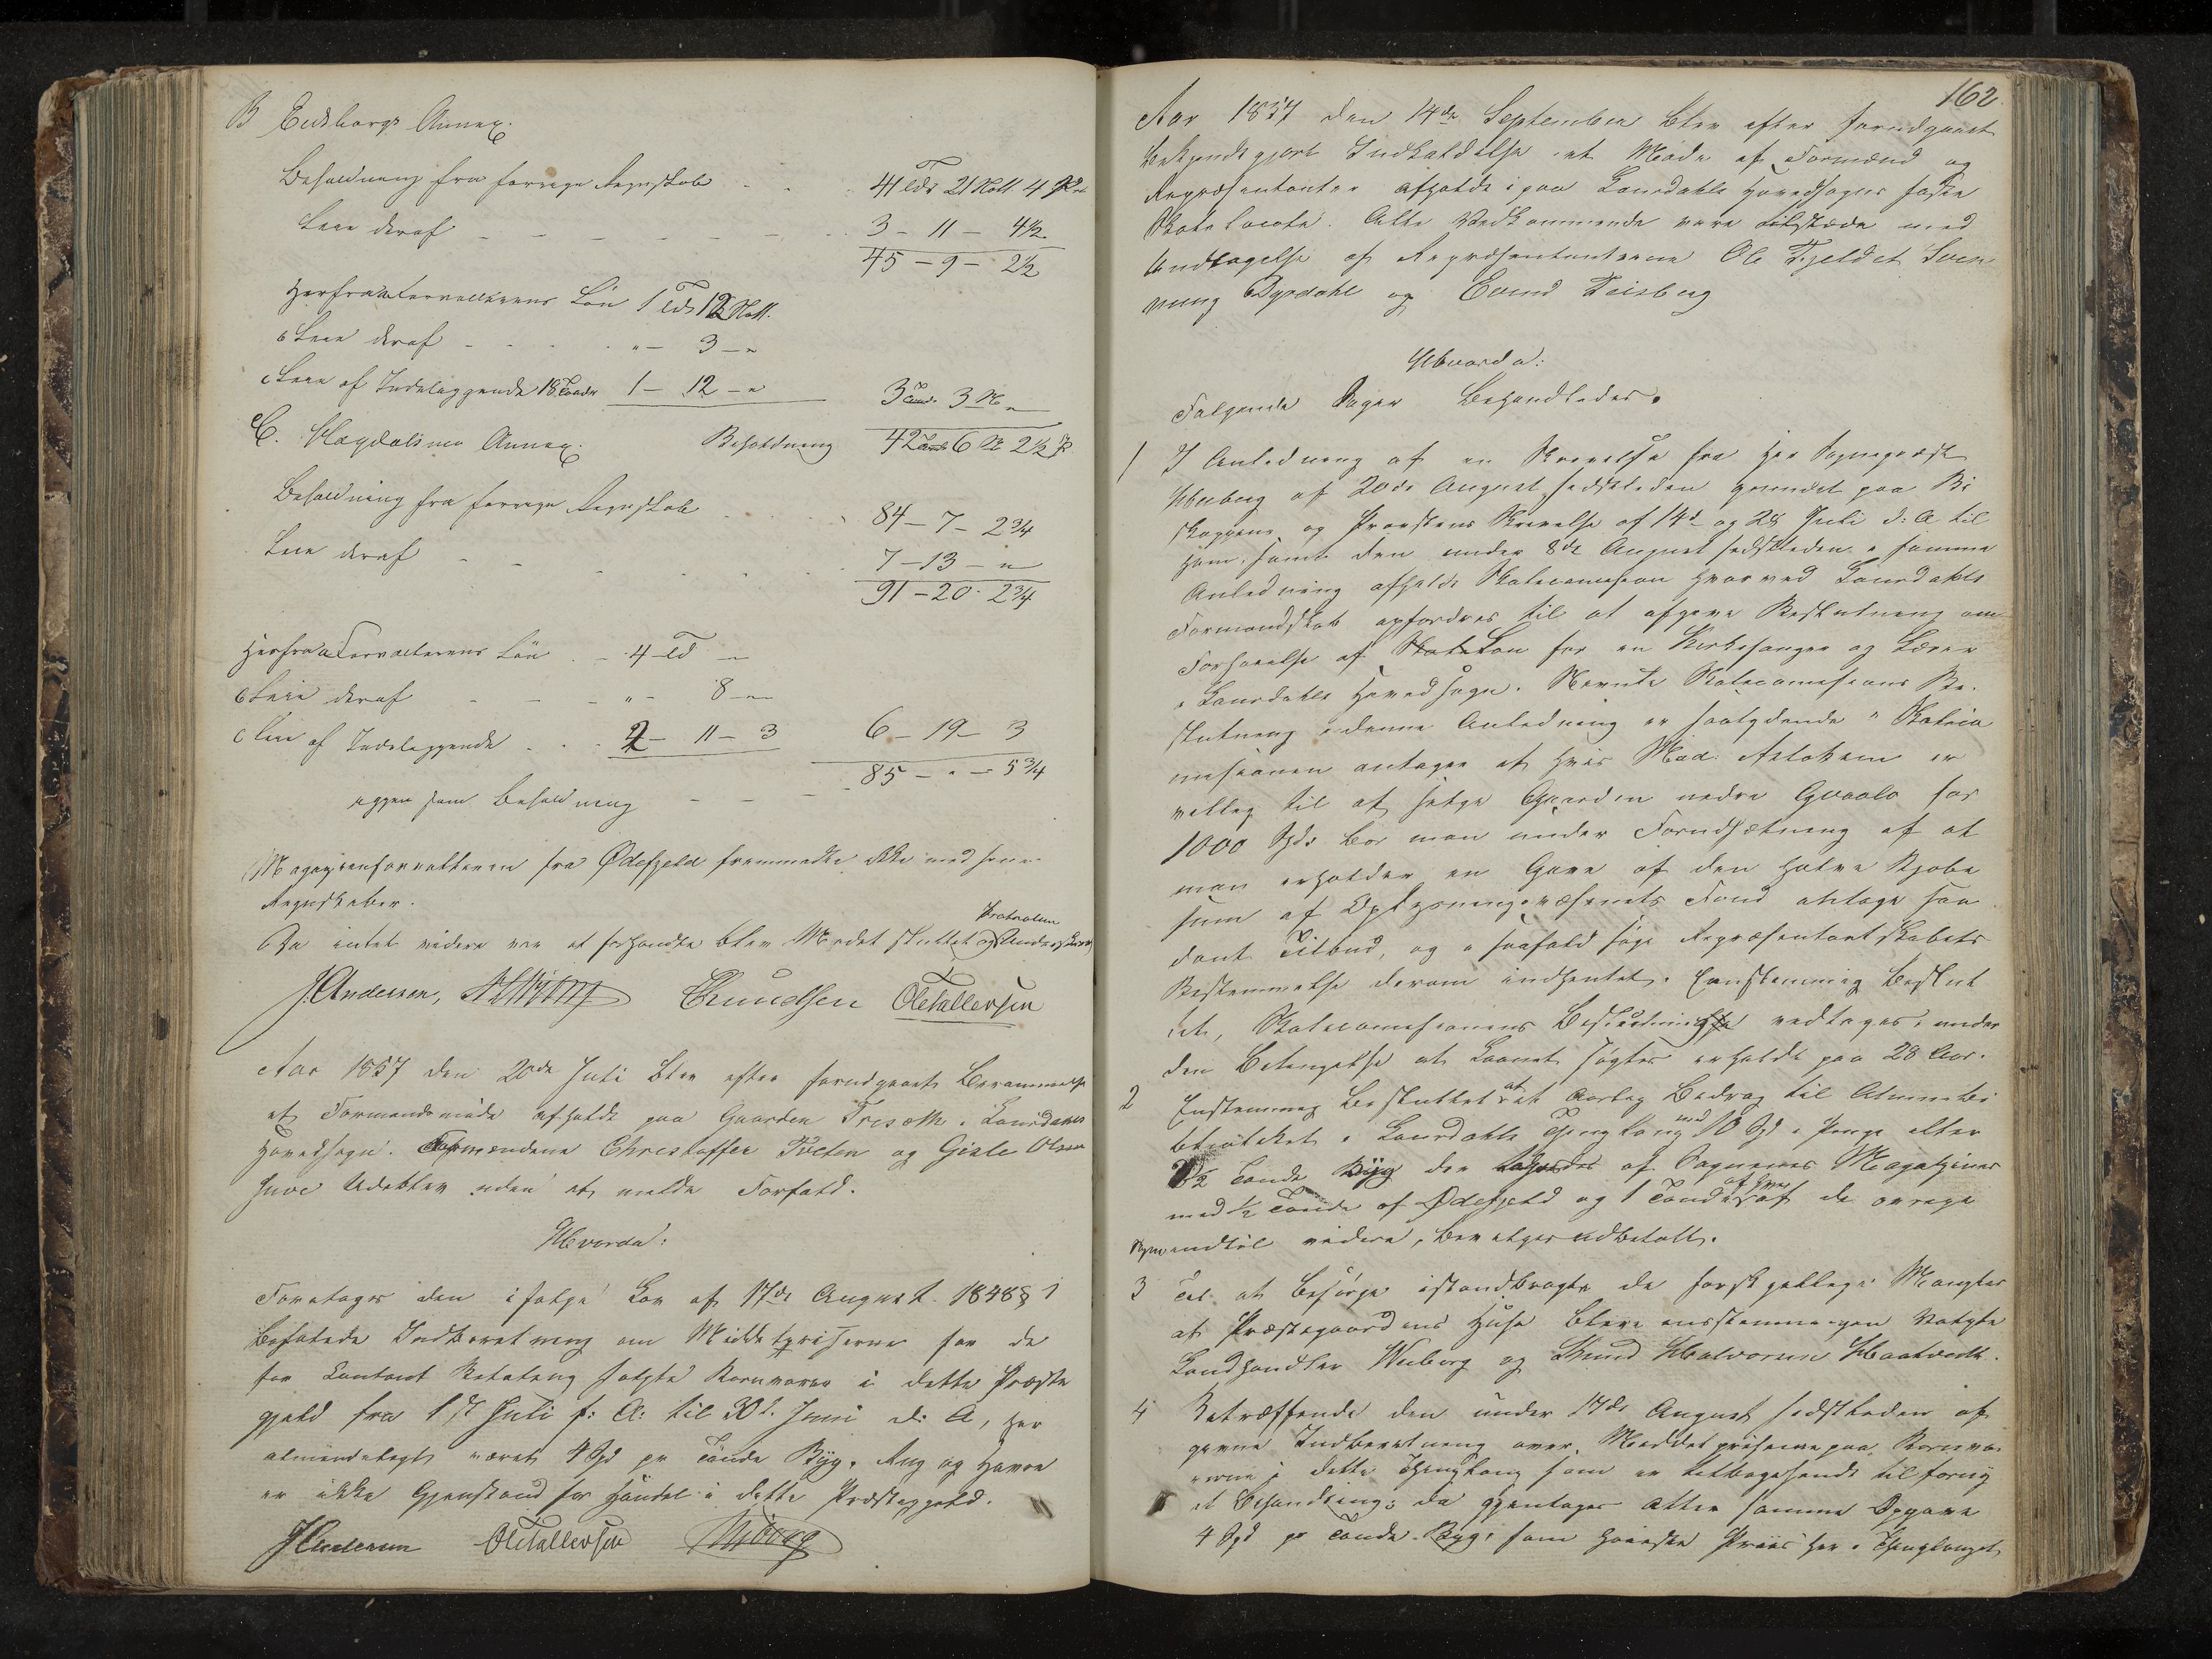 B Eidsborgs Annex.
Beholdning fra forrige Regnskab - - 41 Tdr 21 Kott 4 Pot
Leie deraf - - - - - - 3 - 11 - 4½
45 - 9 - 2½
Herfra a Forvalterens Løn 1 Td 12 Kott.
b Leie deraf - - - " - 3 - "
c Leie af Indeliggende 18 Tønder 1 - 12 - " 3 Tønd. 3 K "
C. Høydalsmo Annex. Beholdning 42 Tønd 6 K 2½ P
Beholdning fra forrige Regnskab - - - 84 - 7 - 2¾
Leie deraf - - - - - 7 - 13 - "
91 - 20 - 2¾
Herfra a Forvalterens Løn - 4 Td "
b Leie deraf - - - " - 8 - "
c Leie af Indeliggende - - 2 - 11 - 3 6 - 19 - 3
85 - " - 5¾
igjen som Beholdning - - -
Magazinforvalteren fra Ødefjeld fremmødte ikke med sine
Regnskaber.
Da intet videre var at forhandle blev Mødet sluttet og Protocollen Underskrevet
J. Andersen, Knudsen Ole Tallevsen
Aar 1857 den 20de Juli blev efter forudgaaet Berammelse
et Formandsmøde afholdt paa Gaarden Trisæth i Laurdahls
Hovedsogn. Formændene Christoffer Tveten og Gisle Olsen
Juve Udeblev uden at melde Forfald.
Hvorda:
Foretages den ifølge Lov af 17de August 1848 § 1
befalede Indberetning om Middelpriserne for de
for Contant Betaling solgte Kornvarer i dette Præste
gjeld fra 1ste Juli f: A: til 30te Juni d: A, her
almindeligt været 4 Spd pr Tønde Byg. Rug og Havre
er ikke Gjenstand for Handel i dette Præstegjeld.
J Andersen Ole Tallevsen Wiborg
162
Aar 1857 den 14de September blev efter forudgaaet
bekjendtgjort Indkaldelse et Møde af Formænd og
Repræsentanter afholdt paa Laurdahls Hovedsogns faste
Skole locale. Alle Vedkommende vare tilstæde med
Undtagelse af Repræsentanterne Ole Fjeldet Sven
nung Dyrdahl og Eivind Feisberg
Hvorda:
Følgende Sager Behandledes.
1 I Anledning af en Skrivelse fra Hr Sognepræst
af 20de August sidstleden grundet paa Bi
skoppens og Provstens Skrivelse af 14de og 28 Juli d: A til
Ham, samt den under 8de August sidstleden i samme
Anledning afholdt Skolecomission hvorved Laurdahls
Formandskab opfordres til at afgive Beslutning om
Forhøielse af Løn for en Kirkesanger og Lærer
i Laurdahls Hovedsogn. Nævnte Skolecomisions Be-
slutning i denne Anledning er saalydende " Skolecom
misionen antager at hvis Mad. er
villig til at sælge Gaarden nedre for
1000 Spd bør man under Forudsætning af at
man erholder en Gave af den halve Kjøbe
sum af Oplysningsvæsenets Fond antage saa
dant Tilbud, og i saafald søge Repræsentantskabets
Bestemmelse derom indhentet. Eenstemmig beslut
tet, Skolecomisionens Beslutning vedtages, under
den Betingelse at Laanet søgtes erholdt paa 28 Aar.
2 Enstemmig besluttet at et aarlig Bedrag til Almuebi
bliotheket i Laurdahls Thinglaug med 10 Spd i Penge eller
2½ Tønde Byg der af Sognenes Magaziner
med ½ Tønde af Ødefjeld og 1 Tønde af hver af de øvrige
Sogne indtil videre, bevilges udbetalt.
3 Til at besørge istandbragte de forskjellige Mangler
at Præstegaardens Huse bleve eensstemmigen Valgte
Landhandler Wiborg og Halvorsen
4 Betræffende den under 17de August sidstleden af
givne Indberetning over Middelpriserne paa Kornva
rerne i dette Thinglaug som er tilbagesendt til forny
et Behandling; da gjentages atter samme Opgave
4 Spd pr Tønde Byg, som høieste Priis her i Thinglauget